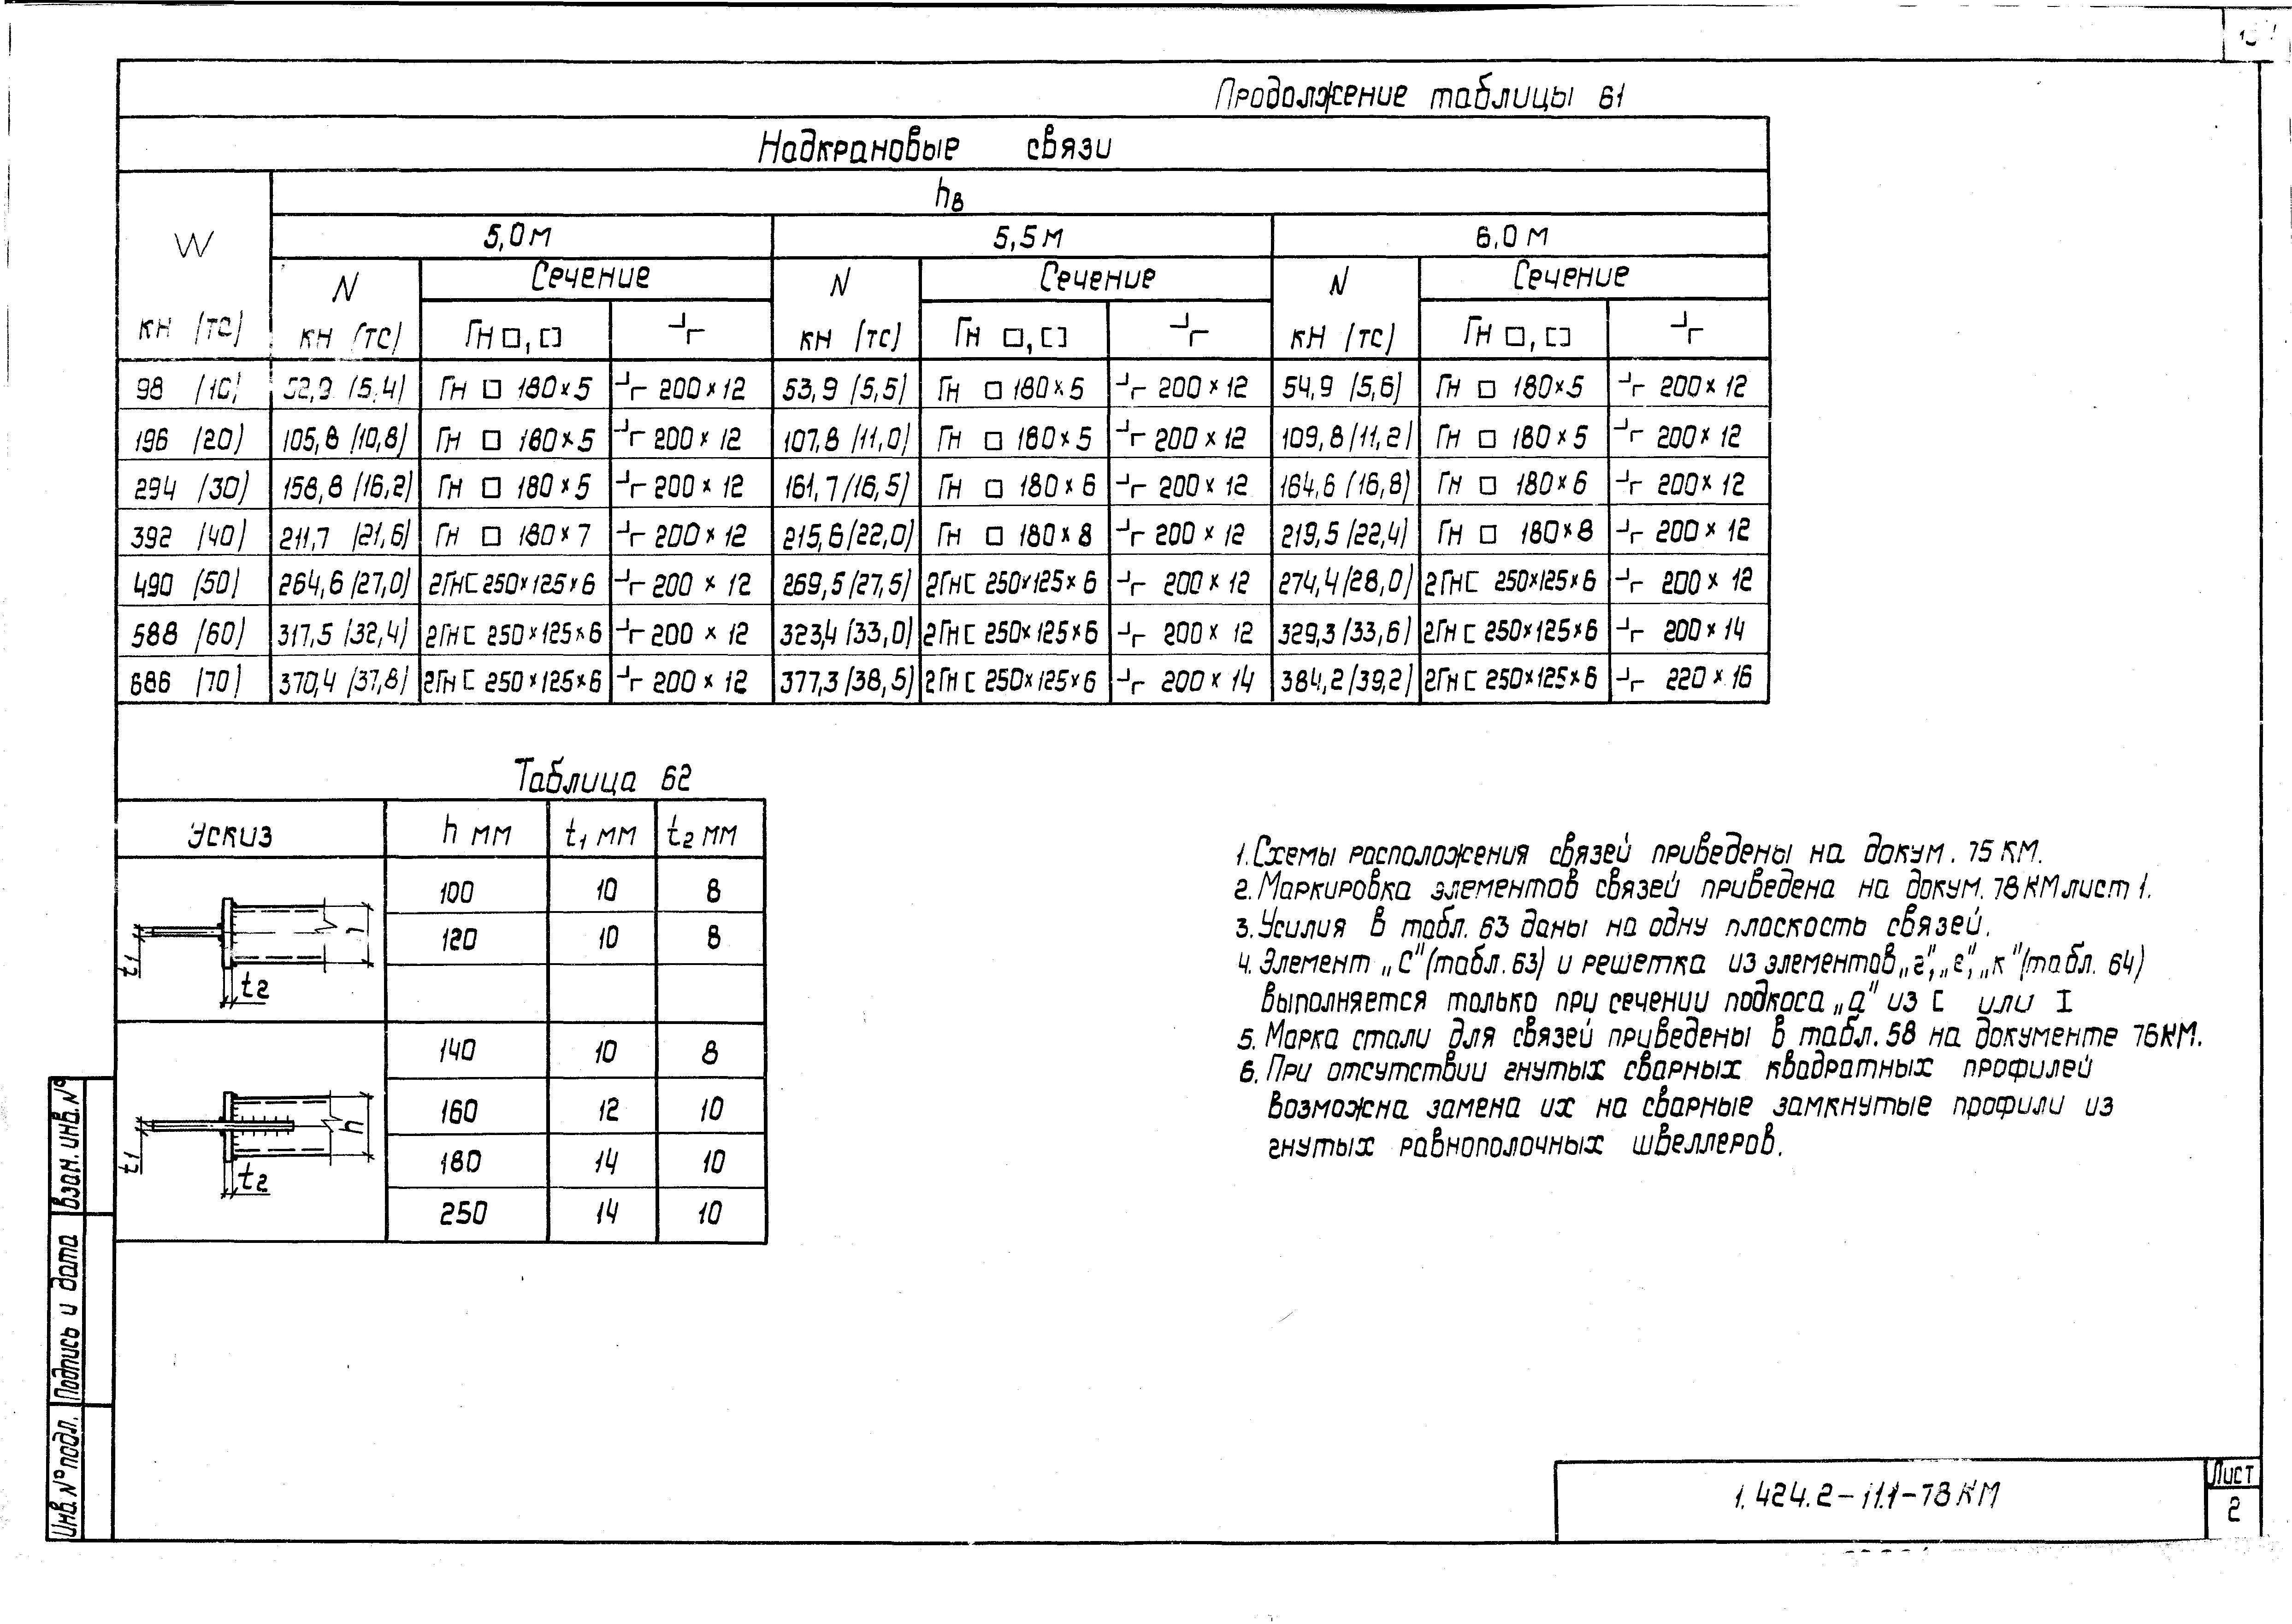 Продолжение таблицы 61
Надкрановые связи
W кн (тс) hв
5,0м 5,5м 6,0м
N кн (тс) Сечение N кн (тс) Сечение N кн (тс) Сечение
Гн □, [] ┘┌ Гн □, [] ┘┌ Гн □, [] ┘┌
98 (10) 52,9 (5,4) Гн □ 180×5 ┘┌ 200×12 53,9 (5,5) Гн □ 180×5 ┘┌ 200×12 54,9 (5,6) Гн □ 180×5 ┘┌ 200×12
196 (20) 105,8 (10,8) Гн □ 180×5 ┘┌ 200×12 107,8 (11,0) Гн □ 180×5 ┘┌ 200×12 109,8 (11,2) Гн □ 180×5 ┘┌ 200×12
294 (30) 158,8 (16,2) Гн □ 180×5 ┘┌ 200×12 161,7 (16,5) Гн □ 180×6 ┘┌ 200×12 164,6 (16,8) Гн □ 180×6 ┘┌ 200×12
392 (40) 211,7 (21,6) Гн □ 180×7 ┘┌ 200×12 215,6 (22,0) Гн □ 180×8 ┘┌ 200×12 219,5 (22,4) Гн □ 180×8 ┘┌ 200×12
490 (50) 264,6 (27,0) 2Гн[ 250×125×6 ┘┌ 200×12 269,5 (27,5) 2Гн[ 250×125×6 ┘┌ 200×12 274,4 (28,0) 2Гн[ 250×125×6 ┘┌ 200×12
588 (60) 317,5 (32,4) 2Гн[ 250×125×6 ┘┌ 200×12 323,4 (33,0) 2Гн[ 250×125×6 ┘┌ 200×12 329,3 (33,6) 2Гн[ 250×125×6 ┘┌ 200×14
686 (70) 370,4 (37,8) 2Гн[ 250×125×6 ┘┌ 200×12 377,3 (38,5) 2Гн[ 250×125×6 ┘┌ 200×14 384,2 (39,2) 2Гн[ 250×125×6 ┘┌ 220×16
Таблица 62
Эскиз h мм t1 мм t2 мм
100 10 8
120 10 8
t1 t2 h
140 10 8
160 12 10
180 14 10
250 14 10
t1 t2 h
1. Схемы расположения связей приведены на докум. 75 КМ.
2. Маркировка элементов связей приведена на докум. 78КМ лист 1.
3. Усилия в табл. 63 даны на одну плоскость связей.
4. Элемент „С" (табл. 63) и решетка из элементов „г", „е", „к" (табл. 64)
выполняется только при сечении подкоса „а" из [ или I
5. Марка стали для связей приведены в табл. 58 на документе 76КМ.
6. При отсутствии гнутых сварных квадратных профилей
возможна замена их на сварные замкнутые профили из
гнутых равнополочных швеллеров.
Взам. инв. №
Подпись и дата
Инв. № подл.
1.424.2-11.1-78КМ
Лист
2